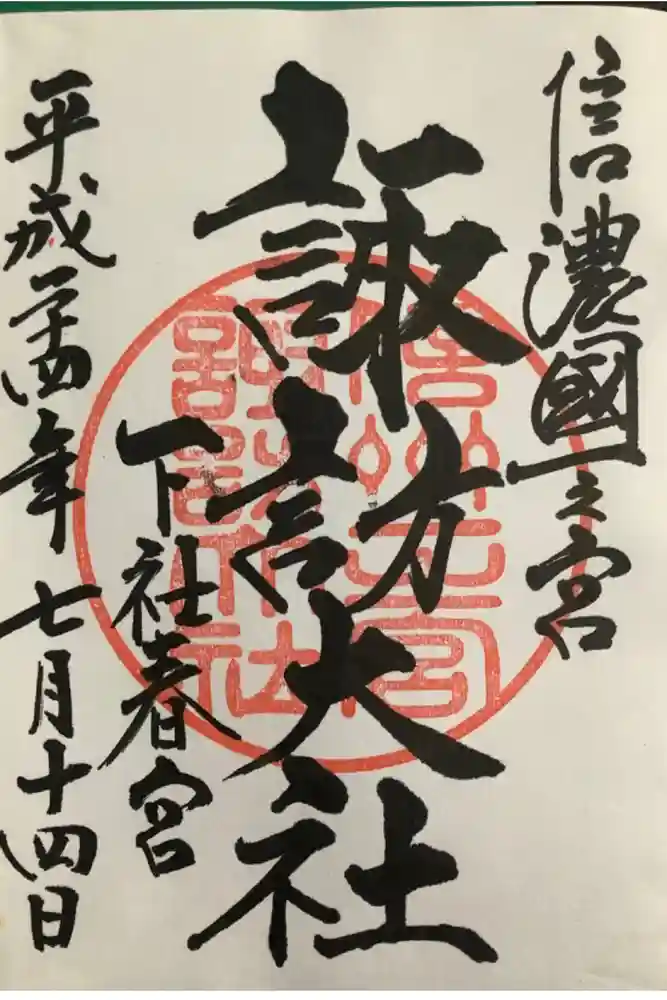 信濃國一之宮
諏訪大社
下社春宮
平成二十四年七月十四日